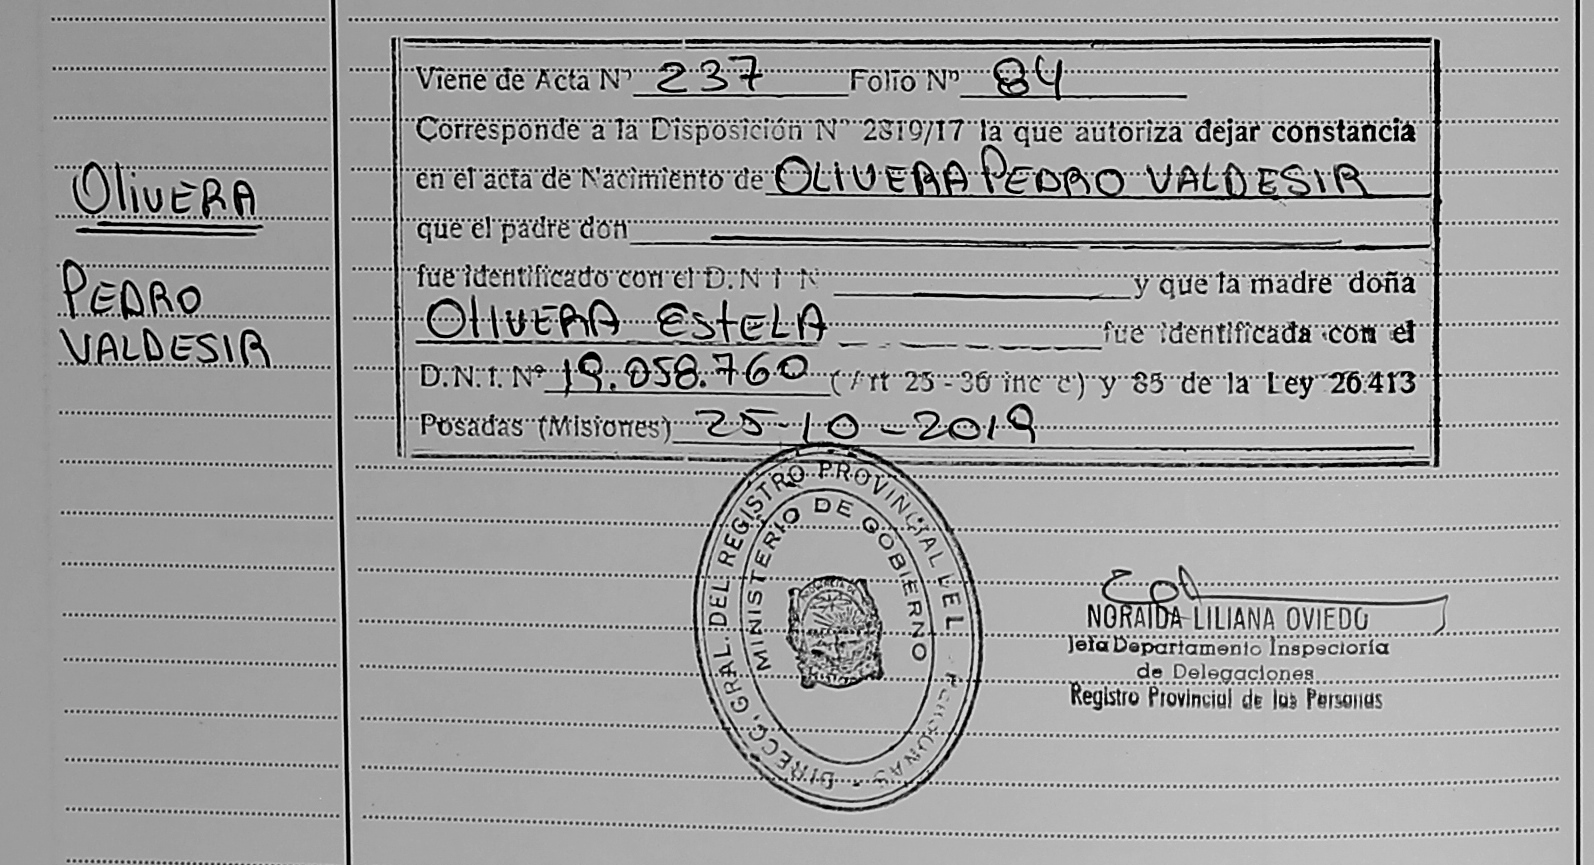 OliVERA
PEDRO
VALDESIR
Viene de Acta Nº 237 Folio Nº 84
Corresponde a la Disposición Nº 2319/17 la que autoriza dejar constancia
en el acta de Nacimiento de OLIVERA PEDRO VALDESIR
que el padre don
fue identificado con el D.N.I N y que la madre doña
OliVERA EStELA fue identificada con el
D.N.I. Nº 19.058.760 (Art 25-36 inc c) y 85 de la Ley 26.413
Posadas (Misiones) 25-10-2019
DIRECC. GRAL. DEL REGISTRO PROVINCIAL DE L PERSONAS
MINISTERIO DE GOBIERNO
NORAIDA LILIANA OVIEDO
Jefa Departamento Inspectoría
de Delegaciones
Registro Provincial de las Personas